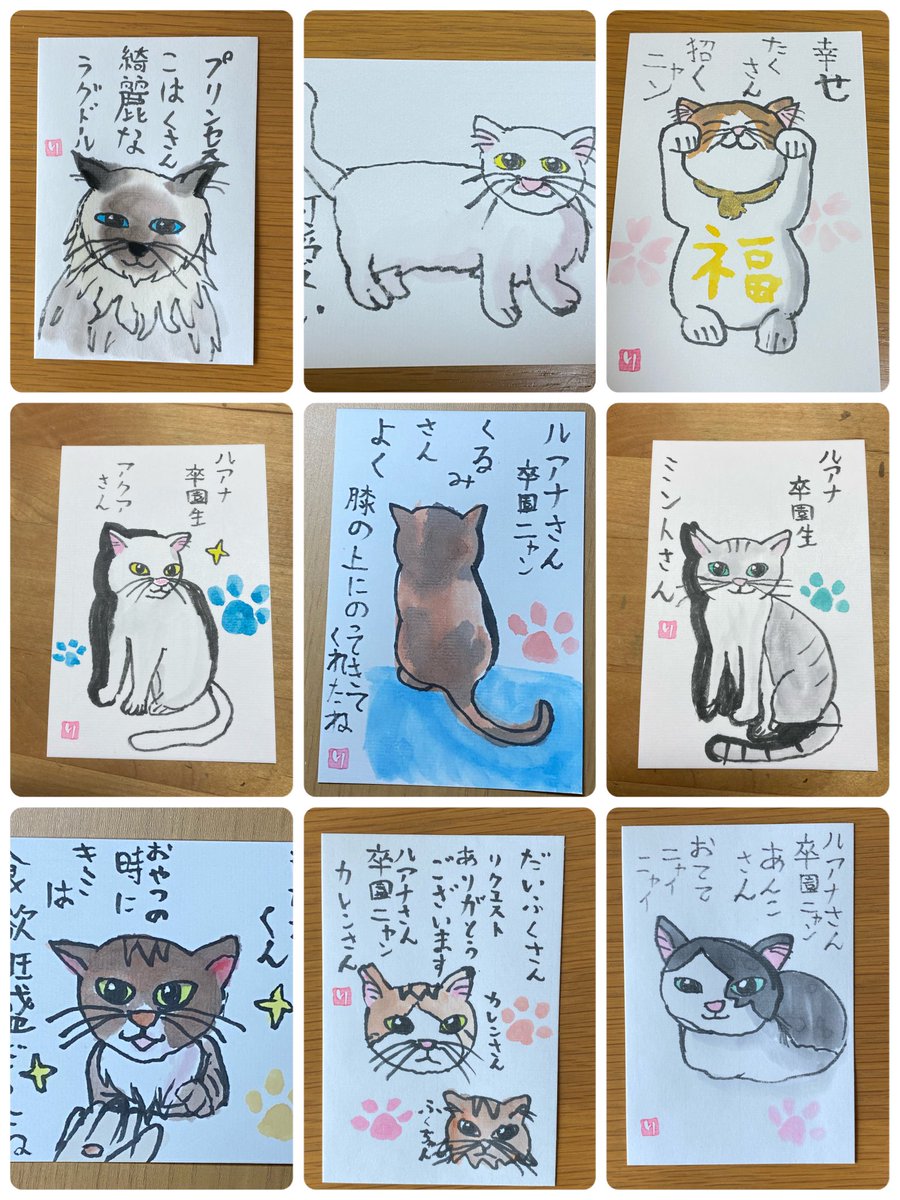 プリンセス
こはくさん
綺麗な
ラグドール
幸せ
たく
さん
招く
ニャン
福
ルアナ
卒園生
アクア
さん
ルアナさん
卒園ニャン
くるみ
さん
よく
膝の上にのってきて
くれたね
ルアナ
卒園生
ミントさん
くん
おやつの
時に
きみは
食欲旺盛
だいふくさん
リクエスト
ありがとう
ございます
ルアナさん
卒園ニャン
カレンさん
カレンさん
ふくちゃん
ルアナさん
卒園ニャン
あんこ
さん
おてて
ニャイ
ニャイ